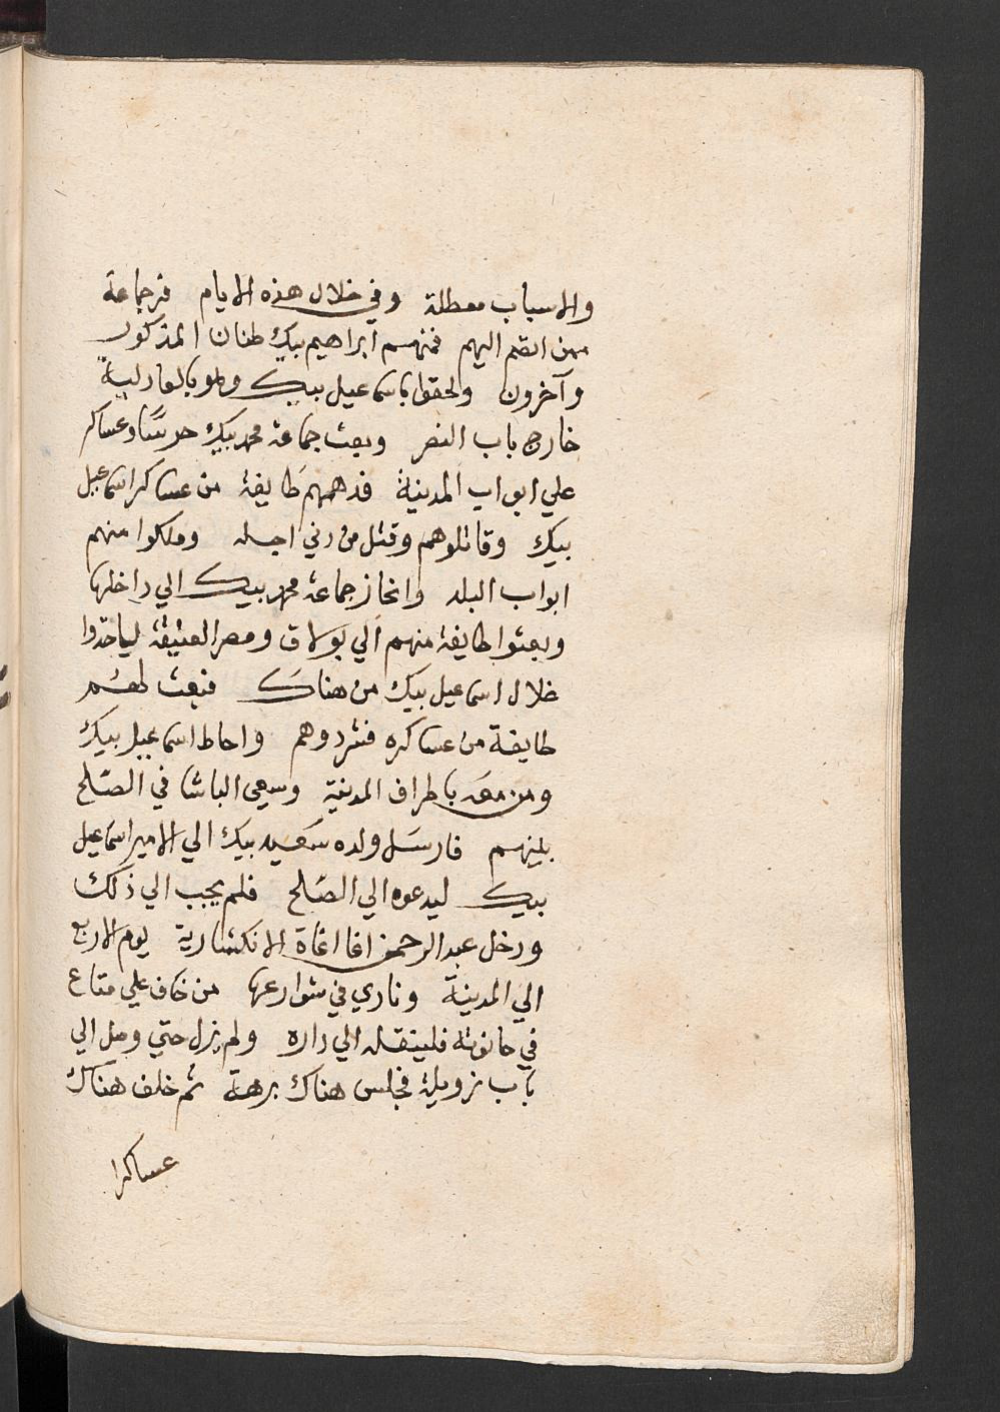 والاسباب معطلة وفي خلال هذه الايام فر جماعة
ممن انضم اليهم فمنهم ابراهيم بيك طنان المذكور
وآخرون ولحقوا باسماعيل بيك وهو بالعادلية
خارج باب النصر وبعث جماعة محمد بيك حرسًا وعساكر
علي ابواب المدينة فدهمهم طايفة من عساكر اسماعيل
بيك وقاتلوهم وقتل من دني اجله وملكوا منهم
ابواب البلد وانحاز جماعة محمد بيك الي داخلها
وبعثوا طايفة منهم الي بولاق ومصر العتيقة لياخذوا
خلال اسماعيل بيك من هناك فبعث لهم
طايفة من عساكره فشردوهم واحاط اسماعيل بيك
ومن معه باطراف المدينة وسعي الباشا في الصلح
بينهم فارسل ولده سعيد بيك الي الامير اسماعيل
بيك ليدعوه الي الصلح فلم يجب الي ذلك
ودخل عبد الرحمن اغا اغاة الانكشارية يوم الاربع
الي المدينة ونادي في شوارعها من خاف علي متاع
في حانوته فلينقله الي داره ولم يزل حتي وصل الي
باب زويلة فجلس هناك برهة ثم خلف هناك
عساكرا